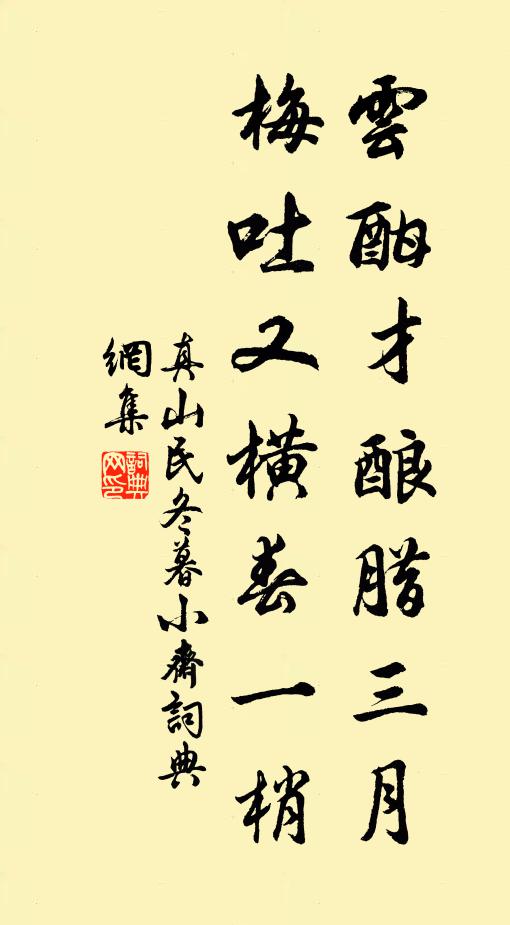 雲酣才酿腊三月
梅吐又横春一梢
真山民冬暮小齋詞典
網集
詞典
网印